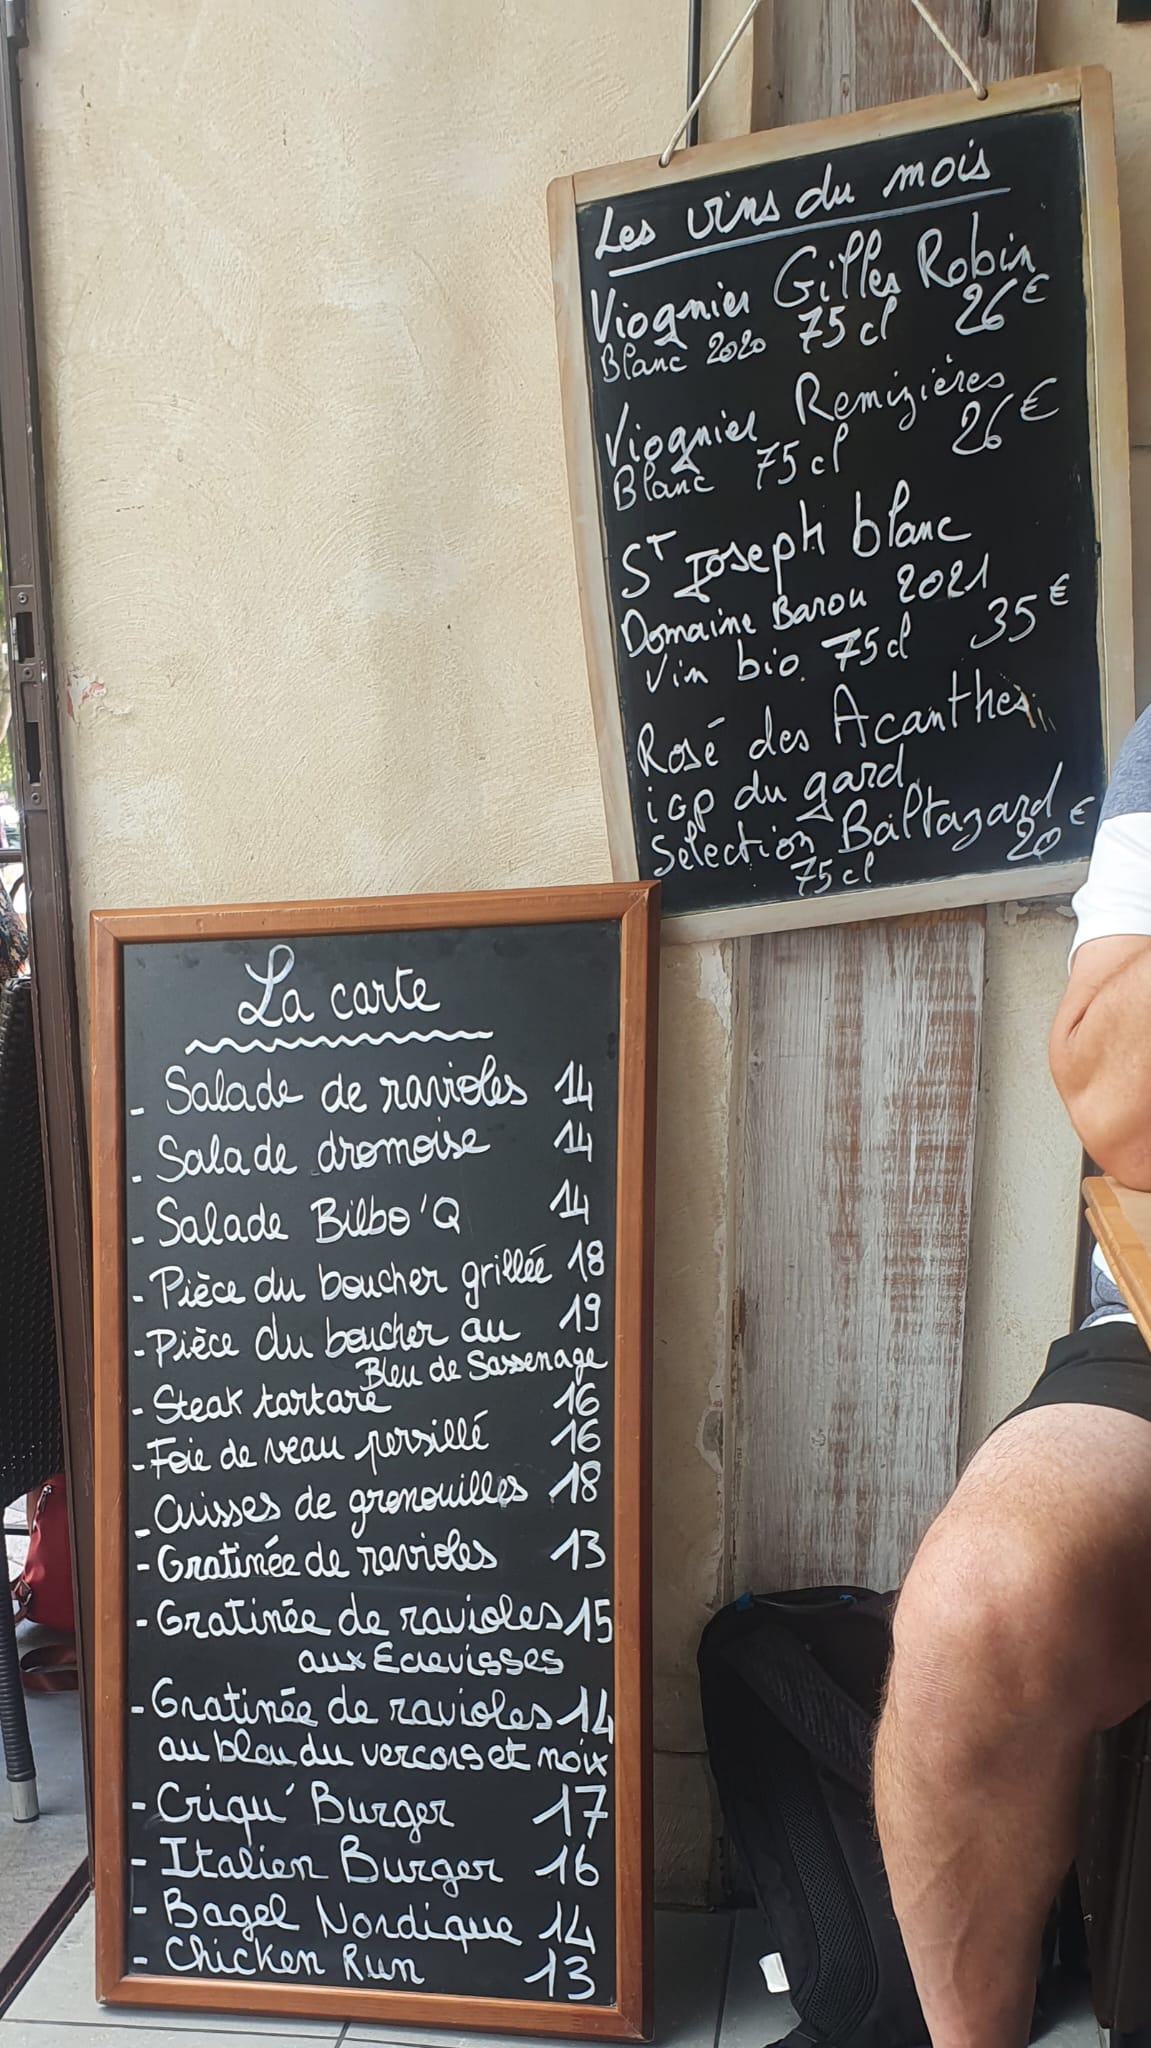 Les vins du mois
Viognier Gilles Robin
Blanc 2020 75 cl 26€
Viognier Remizières
Blanc 75 cl 26€
ST Joseph blanc
Domaine Barou 2021
Vin bio. 75cl 35€
Rosé des Acanthes
igp du gard
Selection Baltazard
75cl 20€
La carte
- Salade de ravioles 14
- Salade dromoise 14
- Salade Bilbo'Q 14
- Pièce du boucher grillée 18
- Pièce du boucher au 19
Bleu de Sassenage
- Steak tartare 16
- Foie de veau persillé 16
- Cuisses de grenouilles 18
- Gratinée de ravioles 13
- Gratinée de ravioles 15
aux Ecrevisses
- Gratinée de ravioles 14
au bleu du vercors et noix
- Criqu' Burger 17
- Italien Burger 16
- Bagel Nordique 14
- Chicken Run 13